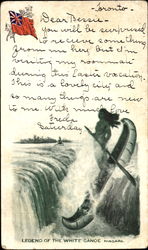 Toronto -
Dear Bessie -
You will be surprised
to recieve something
from me here but I'm
visiting my roommate
during this Easter vacation.
This is a lovely city and
so many things are new
to me. With much love
Freda
Saturday
LEGEND OF THE WHITE CANOE NIAGARA.